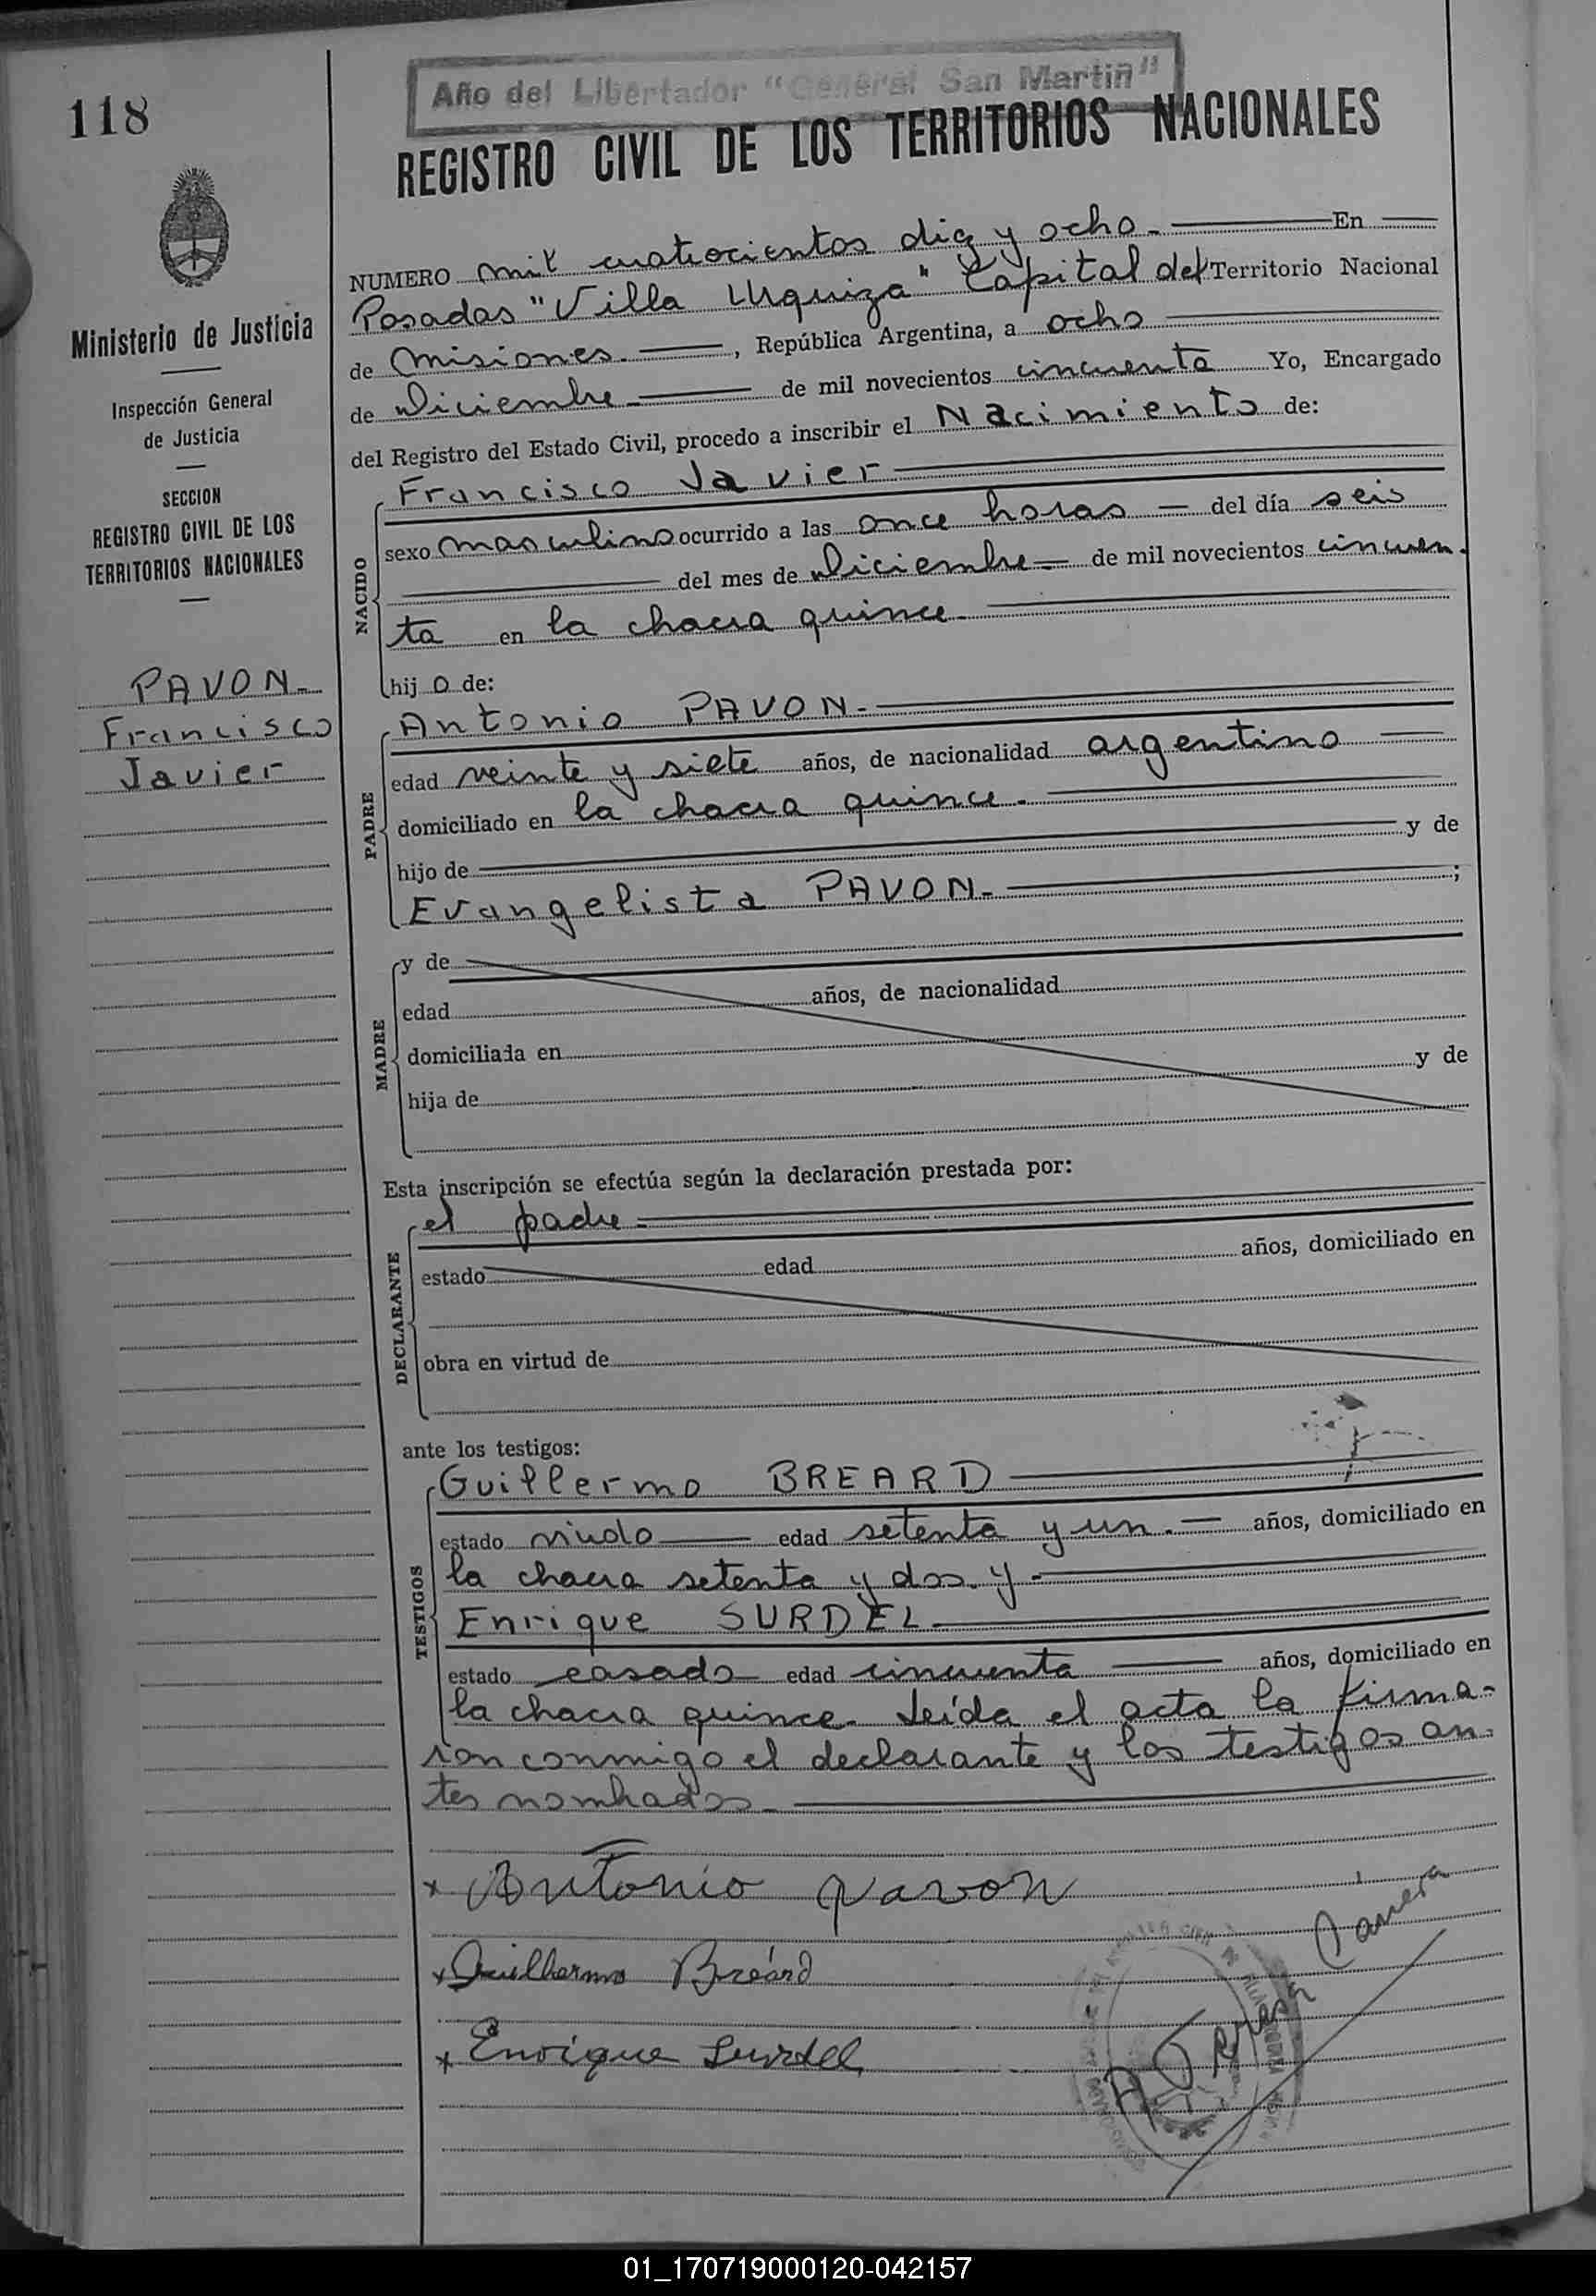 118
Año del Libertador "General San Martin"
REGISTRO CIVIL DE LOS TERRITORIOS NACIONALES
Ministerio de Justicia
Inspección General
de Justicia
SECCION
REGISTRO CIVIL DE LOS
TERRITORIOS NACIONALES
PAVON-
Francisco
Javier
NUMERO mil cuatrocientos diez y ocho.- En
Posadas "Villa Urquiza" Capital del Territorio Nacional
de Misiones.-, República Argentina, a ocho
de Diciembre.- de mil novecientos cincuenta Yo, Encargado
del Registro del Estado Civil, procedo a inscribir el Nacimiento de:
NACIDO
Francisco Javier
sexo masculino ocurrido a las once horas - del día seis
del mes de Diciembre- de mil novecientos cincuen-
ta en la chacra quince.
hij o de:
PADRE
Antonio PAVON.-
edad veinte y siete años, de nacionalidad argentino
domiciliado en la chacra quince.-
hijo de y de
Evangelista PAVON- ;
MADRE
y de
edad años, de nacionalidad
domiciliada en
hija de y de
Esta inscripción se efectúa según la declaración prestada por:
DECLARANTE
el padre-
estado edad años, domiciliado en
obra en virtud de
ante los testigos:
TESTIGOS
Guillermo BREARD
estado viudo edad setenta y un.- años, domiciliado en
la chacra setenta y dos. y-
Enrique SURDEL-
estado casado edad cincuenta años, domiciliado en
la chacra quince. Leída el acta la firma-
ron conmigo el declarante y los testigos an-
tes nombrados.-
x Antonio pavon
x Guilhermo Breárd
x Enrique Surdel
01_170719000120-042157